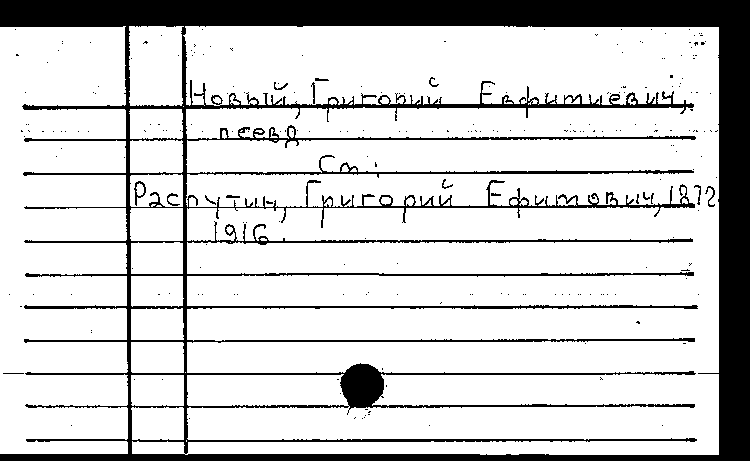 Новый, Григорий Евфимиевич,
псевд
См.:
Распутин, Григорий Ефимович, 1872
1916.